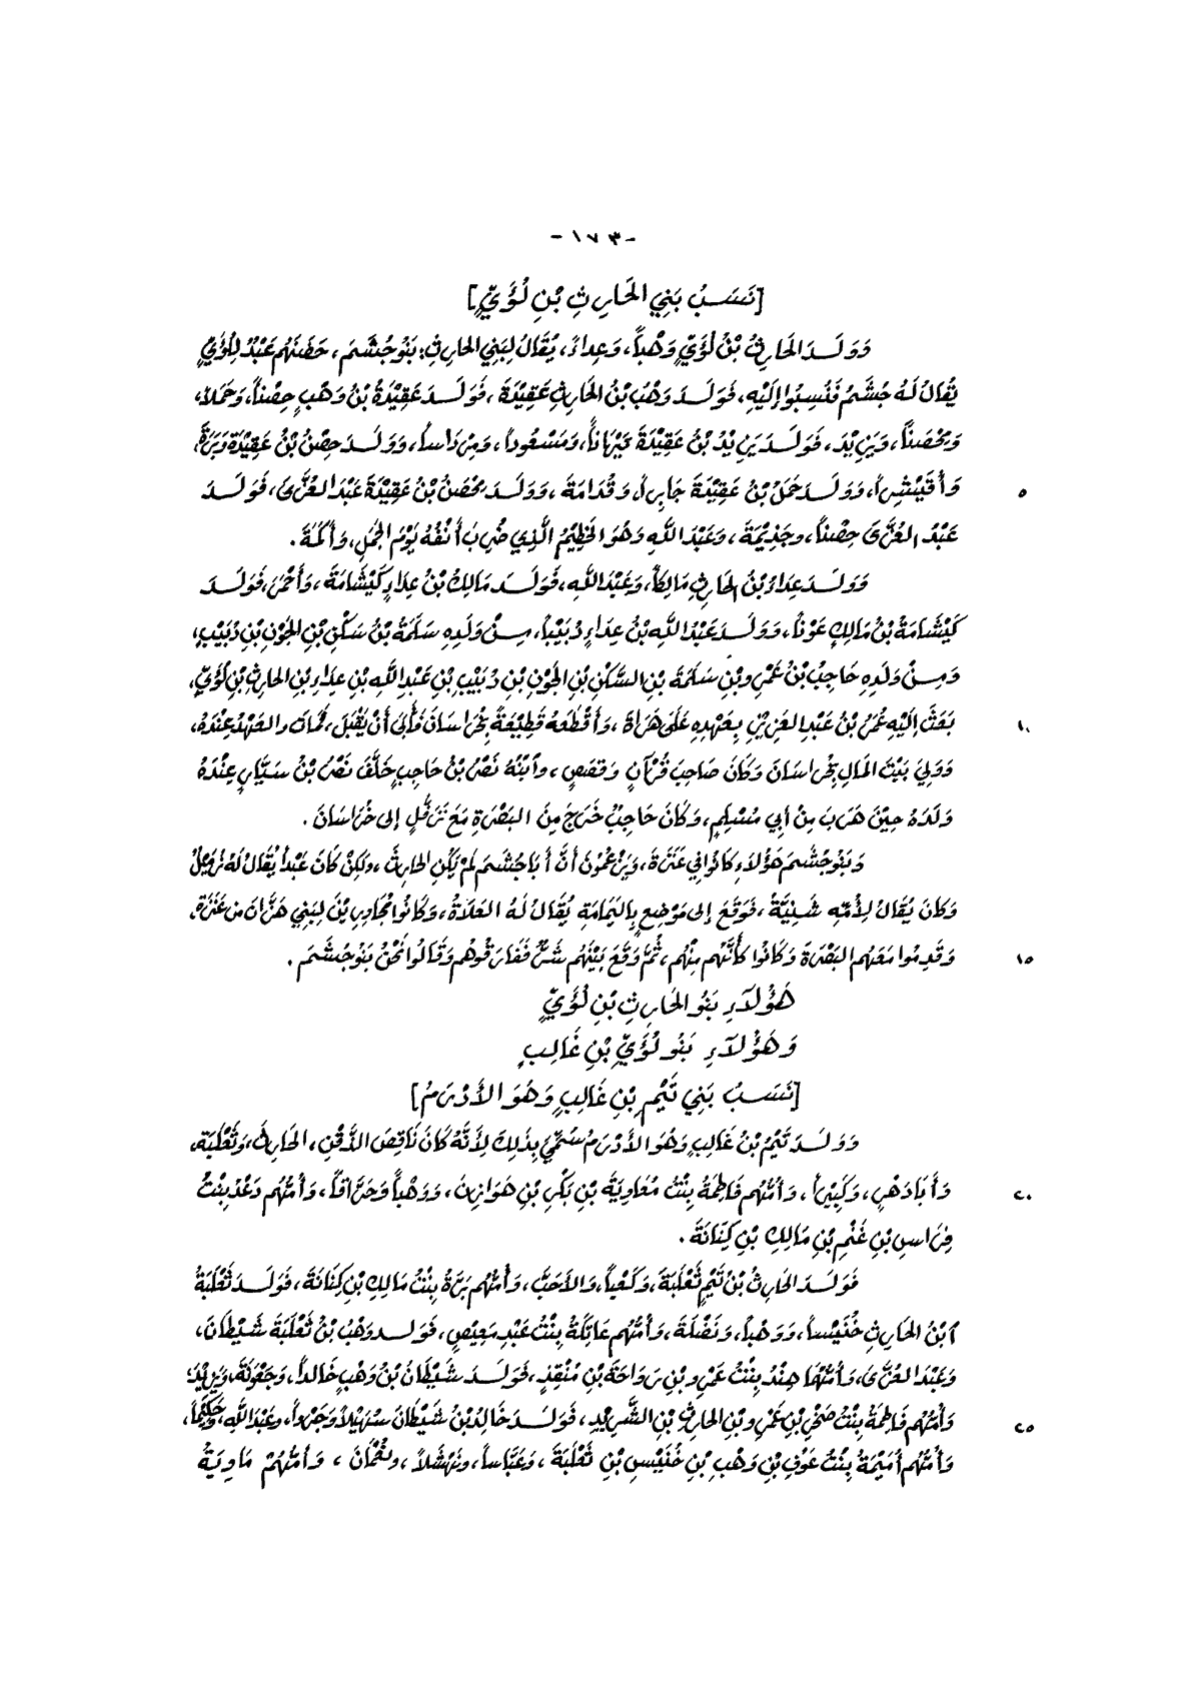 - ١٧٣ -
[نَسَبُ بَنِي الحَارِثِ بْنِ لُؤَيٍّ]
وَوَلَدَ الحَارِثُ بْنُ لُؤَيٍّ وَهْباً، وَعِداءً، يُقَالُ لِبَنِي الحَارِثِ: بَنُو جُشَمَ، حَضَنَهُم عَبْدٌ لِلُؤَيٍّ
يُقَالُ لَهُ جُشَمُ فَنُسِبُوا إِلَيْهِ، فَوَلَدَ وَهْبُ بْنُ الحَارِثِ عَقِيْدَةَ، فَوَلَدَ عَقِيْدَةُ بْنُ وَهْبٍ حِصْناً، وَحَمَلاً،
وَمِحْصَناً، وَيَزِيْدَ، فَوَلَدَ يَزِيْدُ بْنُ عَقِيْدَةَ وَمَسْعُوداً، وَمِرْدَاساً، وَوَلَدَ حِصْنُ بْنُ عَقِيْدَةَ
وَأُقَيْشِراً، وَوَلَدَ حَمَلُ بْنُ عَقِيْدَةَ جَابِراً، وَقُدَامَةَ، وَوَلَدَ مِحْصَنُ بْنُ عَقِيْدَةَ عَبْدَ العُزَّى، فَوَلَدَ
٥
عَبْدُ العُزَّى حِصْناً، وجَذِيْمَةَ، وَعَبْدَ اللهِ وَهُوَ الخَطِيْمُ الَّذِي ضُرِبَ أَنْفُهُ يَوْمَ الجَمَلِ، وَأُكْمَةَ.
وَوَلَدَ عِدَاءُ بْنُ الحَارِثِ مَالِكاً، وَعَبْدَ اللهِ، فَوَلَدَ مَالِكُ بْنُ عِدَاءٍ كَيْشَامَةَ، وَأَحْمَرَ، فَوَلَدَ
كَيْشَامَةُ بْنُ مَالِكٍ عَوْناً، وَوَلَدَ عَبْدُ اللهِ بْنُ عِدَاءٍ دُبَيْباً، مِنْ وَلَدِهِ سَلَمَةُ بْنُ سَكَنِ بْنِ الجَوْنِ بْنِ دُبَيْبٍ،
وَمِنْ وَلَدِهِ حَاجِبُ بْنُ عَمْرِو بْنِ سَلَمَةَ بْنِ السَّكَنِ بْنِ الجَوْنِ بْنِ دُبَيْبِ بْنِ عَبْدِ اللهِ بْنِ عِدَاءِ بْنِ الحَارِثِ بْنِ لُؤَيٍّ،
بَعَثَ إِلَيْهِ عُمَرُ بْنُ عَبْدِ العَزِيْزِ بِعَهْدِهِ عَلَى هَرَاةَ، وَأَقْطَعَهُ قَطِيْعَةً بِخُرَاسَانَ فَأَبَى أَنْ يَقْبَلَ، فَمَاتَ والعَهْدُ عِنْدَهُ،
١٠
وَوَلِيَ بَيْتَ المَالِ بِخُرَاسَانَ وَكَانَ صَاحِبَ قُرْآنٍ وَقَصَصٍ، وابْنُهُ نَصْرُ بْنُ حَاجِبٍ خَلَّفَ نَصْرُ بْنُ سَيَّارٍ عِنْدَهُ
وَلَدَهُ حِيْنَ هَرَبَ مِنْ أَبِي مُسْلِمٍ، وَكَانَ حَاجِبٌ خَرَجَ مِنَ البَصْرَةِ مَعَ إِلى خُرَاسَانَ.
وَبَنُو جُشَمَ هَؤُلاَءِ كَانُوا فِي عَنَزَةَ، وَيَزْعُمُونَ أَنَّ أَبَا جُشَمَ لَمْ يَكُنِ الحَارِثَ، ولَكِنْ كَانَ عَبْداً يُقَالُ لَهُ
وَكَانَ يُقَالُ لِأُمِّهِ، فَوَقَعَ إِلى مَوْضِعٍ بِاليَمَامَةِ يُقَالُ لَهُ العَلَاةُ، وَكَانُوا مُجَاوِرِيْنَ لِبَنِي هِزَّانَ مِنْ عَنَزَةَ،
وَقَدِمُوا مَعَهُم البَصْرَةَ وَكَانُوا كَأَنَّهُم مِنْهُم، ثُمَّ وَقَعَ بَيْنَهُم شَرٌّ فَفَارَقُوهُم وَقَالُوا نَحْنُ بَنُو جُشَمَ.
١٥
هَؤُلَاءِ بَنُو الحَارِثِ بْنِ لُؤَيٍّ
وَهَؤُلَاءِ بَنُو لُؤَيِّ بْنِ غَالِبٍ
[نَسَبُ بَنِي تَيْمِ بْنِ غَالِبٍ وَهُوَ الأَدْرَمُ]
وَوَلَدَ تَيْمُ بْنُ غَالِبٍ وَهُوَ الأَدْرَمُ سُمِّيَ بِذَلِكَ لِأَنَّهُ كَانَ نَاقِصَ الذَّقْنِ، الحَارِثَ، وَثَعْلَبَةَ،
وَأَبَا دَهْرٍ، وَكَبِيْراً، وَأُمُّهُم فَاطِمَةُ بِنْتُ مُعَاوِيَةَ بْنِ بَكْرِ بْنِ هَوَازِنَ، وَوَهْباً وَحَرَّاقاً، وَأُمُّهُم دَعْدُ بِنْتُ
٢٠
فِرَاسِ بْنِ غَنْمِ بْنِ مَالِكِ بْنِ كِنَانَةَ.
فَوَلَدَ الحَارِثُ بْنُ تَيْمٍ ثَعْلَبَةَ، وَكَعْباً، وَالأَحَبَّ، وَأُمُّهُم بَرَّةُ بِنْتُ مَالِكِ بْنِ كِنَانَةَ، فَوَلَدَ ثَعْلَبَةُ
ابْنُ الحَارِثِ خُنَيْساً، وَوَهْباً، وَنَضْلَةَ، وَأُمُّهُم عَاتِكَةُ بِنْتُ عَبْدِ مَعِيْصٍ، فَوَلَدَ وَهْبُ بْنُ ثَعْلَبَةَ شَيْطَانَ،
وَعَبْدَ العُزَّى، وَأُمُّهُمَا هِنْدُ بِنْتُ عَمْرِو بْنِ رَوَاحَةَ بْنِ مُنْقِذٍ، فَوَلَدَ شَيْطَانُ بْنُ وَهْبٍ خَالِداً، وَجَعْوَنَةَ، وَيَزِيْدَ،
وَأُمُّهُم فَاطِمَةُ بِنْتُ صَخْرِ بْنِ عَمْرِو بْنِ الحَارِثِ بْنِ الشَّرِيْدِ، فَوَلَدَ خَالِدُ بْنُ شَيْطَانَ سُهَيْلاً وَجَرْولاً، وعَبْدَ اللهِ، وَحَكِيْماً،
٢٥
وَأُمُّهُم أُمَيْمَةُ بِنْتُ عَوْفِ بْنِ وَهْبِ بْنِ خُنَيْسِ بْنِ ثَعْلَبَةَ، وَعَبَّاساً، ونَهْشَلاً، ولُقْمَانَ، وَأُمُّهُمْ مَاوِيَةُ